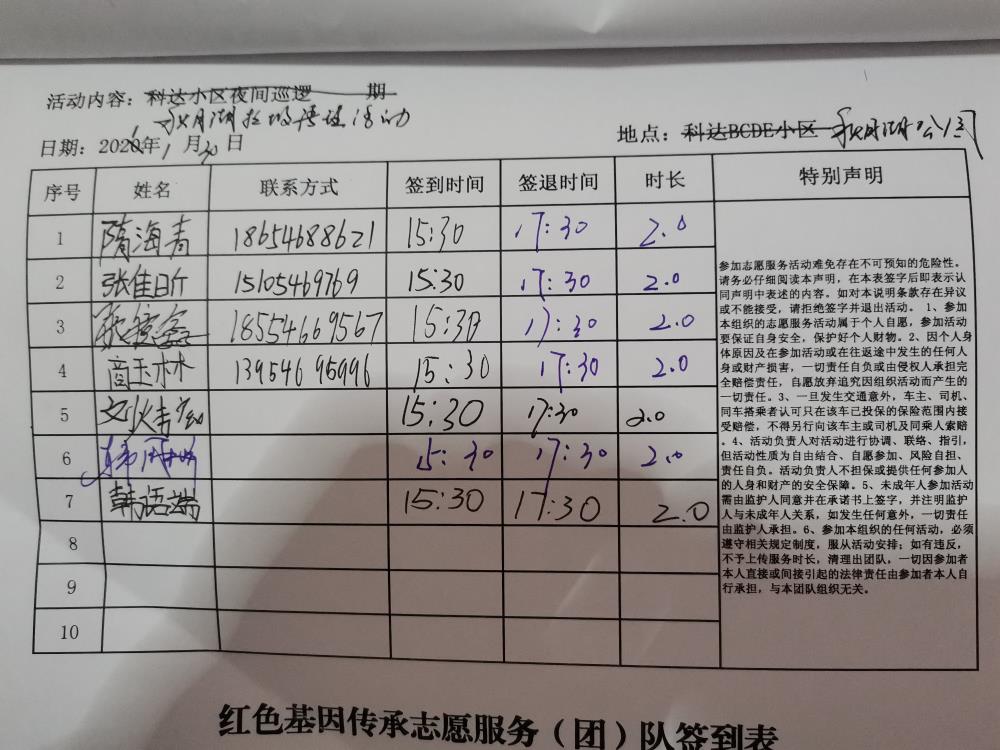 活动内容：科达小区夜间巡逻 期
月湖 活动
日期：2020年1月30日
地点：科达BCDE小区 月湖公园
序号 姓名 联系方式 签到时间 签退时间 时长 特别声明
1 隋海青 18654688621 15:30 17:30 2.0
2 张佳昕 15105469769 15:30 17:30 2.0
3 18554669567 15:30 17:30 2.0
4 商玉林 13954695996 15:30 17:30 2.0
5 15:30 17:30 2.0
6 15:30 17:30 2.0
7 韩语端 15:30 17:30 2.0
8
9
10
参加志愿服务活动难免存在不可预知的危险性。
请务必仔细阅读本声明，在本表签字后即表示认
同声明中表述的内容。如对本说明条款存在异议
或不能接受，请拒绝签字并退出活动。 1、参加
本组织的志愿服务活动属于个人自愿，参加活动
要保证自身安全，保护好个人财物。2、因个人身
体原因及在参加活动或在往返途中发生的任何人
身或财产损害，一切责任自负或由侵权人承担完
全赔偿责任，自愿放弃追究因组织活动而产生的
一切责任。3、一旦发生交通意外，车主、司机、
同车搭乘者认可只在该车已投保的保险范围内接
受赔偿，不得另行向该车主或司机及同乘人索赔
。4、活动负责人对活动进行协调、联络、指引，
但活动性质为自由结合、自愿参加、风险自担、
责任自负。活动负责人不担保或提供任何参加人
的人身和财产的安全保障。5、未成年人参加活动
需由监护人同意并在承诺书上签字，并注明监护
人与未成年人关系，如发生任何意外，一切责任
由监护人承担。6、参加本组织的任何活动，必须
遵守相关规定制度，服从活动安排；如有违反，
不予上传服务时长，清理出团队，一切因参加者
本人直接或间接引起的法律责任由参加者本人自
行承担，与本团队组织无关。
红色基因传承志愿服务（团）队签到表